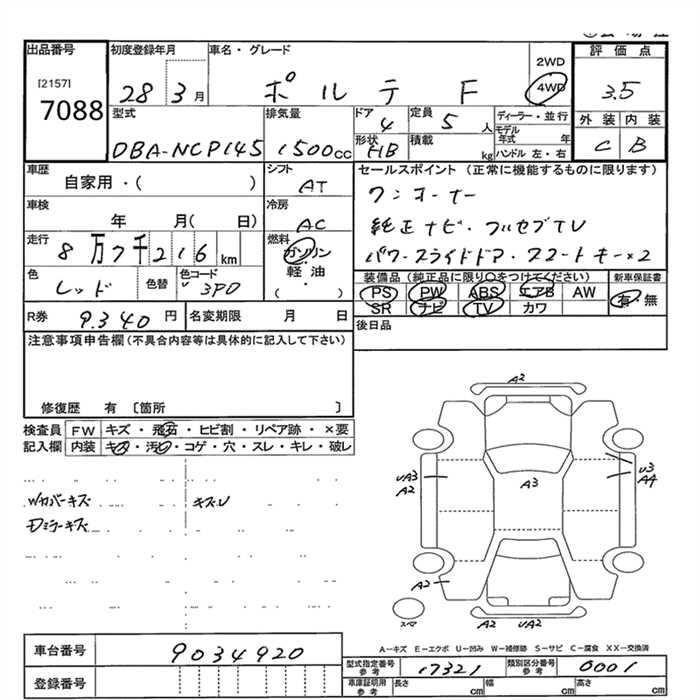 出品番号 初度登録年月 車名・グレード 2WD 評価点
[2157] 7088 28 3月 ポルテ F 4WD 3.5
型式 排気量 ドア 定員 ディーラー・並行 外装 内装
DBA-NCP145 1500cc 4 5人 モデル年式 年 C B
形状 HB 積載 kg ハンドル 左・右
車歴 シフト セールスポイント (正常に機能するものに限ります)
自家用・( ) AT ワンオーナー
車検 冷房 純正ナビ・フルセグTV
年 月( 日) AC パワースライドドア・スマートキー×2
走行 燃料 装備品 (純正品に限り○をつけてください) 新車保証書
8万7千216km ガソリン・軽油・( ) PS PW ABS エアB AW 有・無
色 色替 色コード SR ナビ TV カワ
レッド 3P0
R券 9.340円 名変期限 月 日 後日品
注意事項申告欄 (不具合内容等は具体的に記入して下さい)
修復歴 有 [箇所 ]
検査員記入欄 FW キズ・飛石・ヒビ割・リペア跡・×要
内装 キズ・汚れ・コゲ・穴・スレ・キレ・破レ
Wカバーキズ キズU
Dミラーキズ
A2
UA3 A2 A3 U3 A4
A2
スペア A2 UA2
A-キズ E-エクボ U-凹み W-補修跡 S-サビ C-腐食 XX-交換済
車台番号 9034920
型式指定番号 参考 17321 類別区分番号 参考 0001
登録番号 車庫証明用 参考 長さ cm 幅 cm 高さ cm